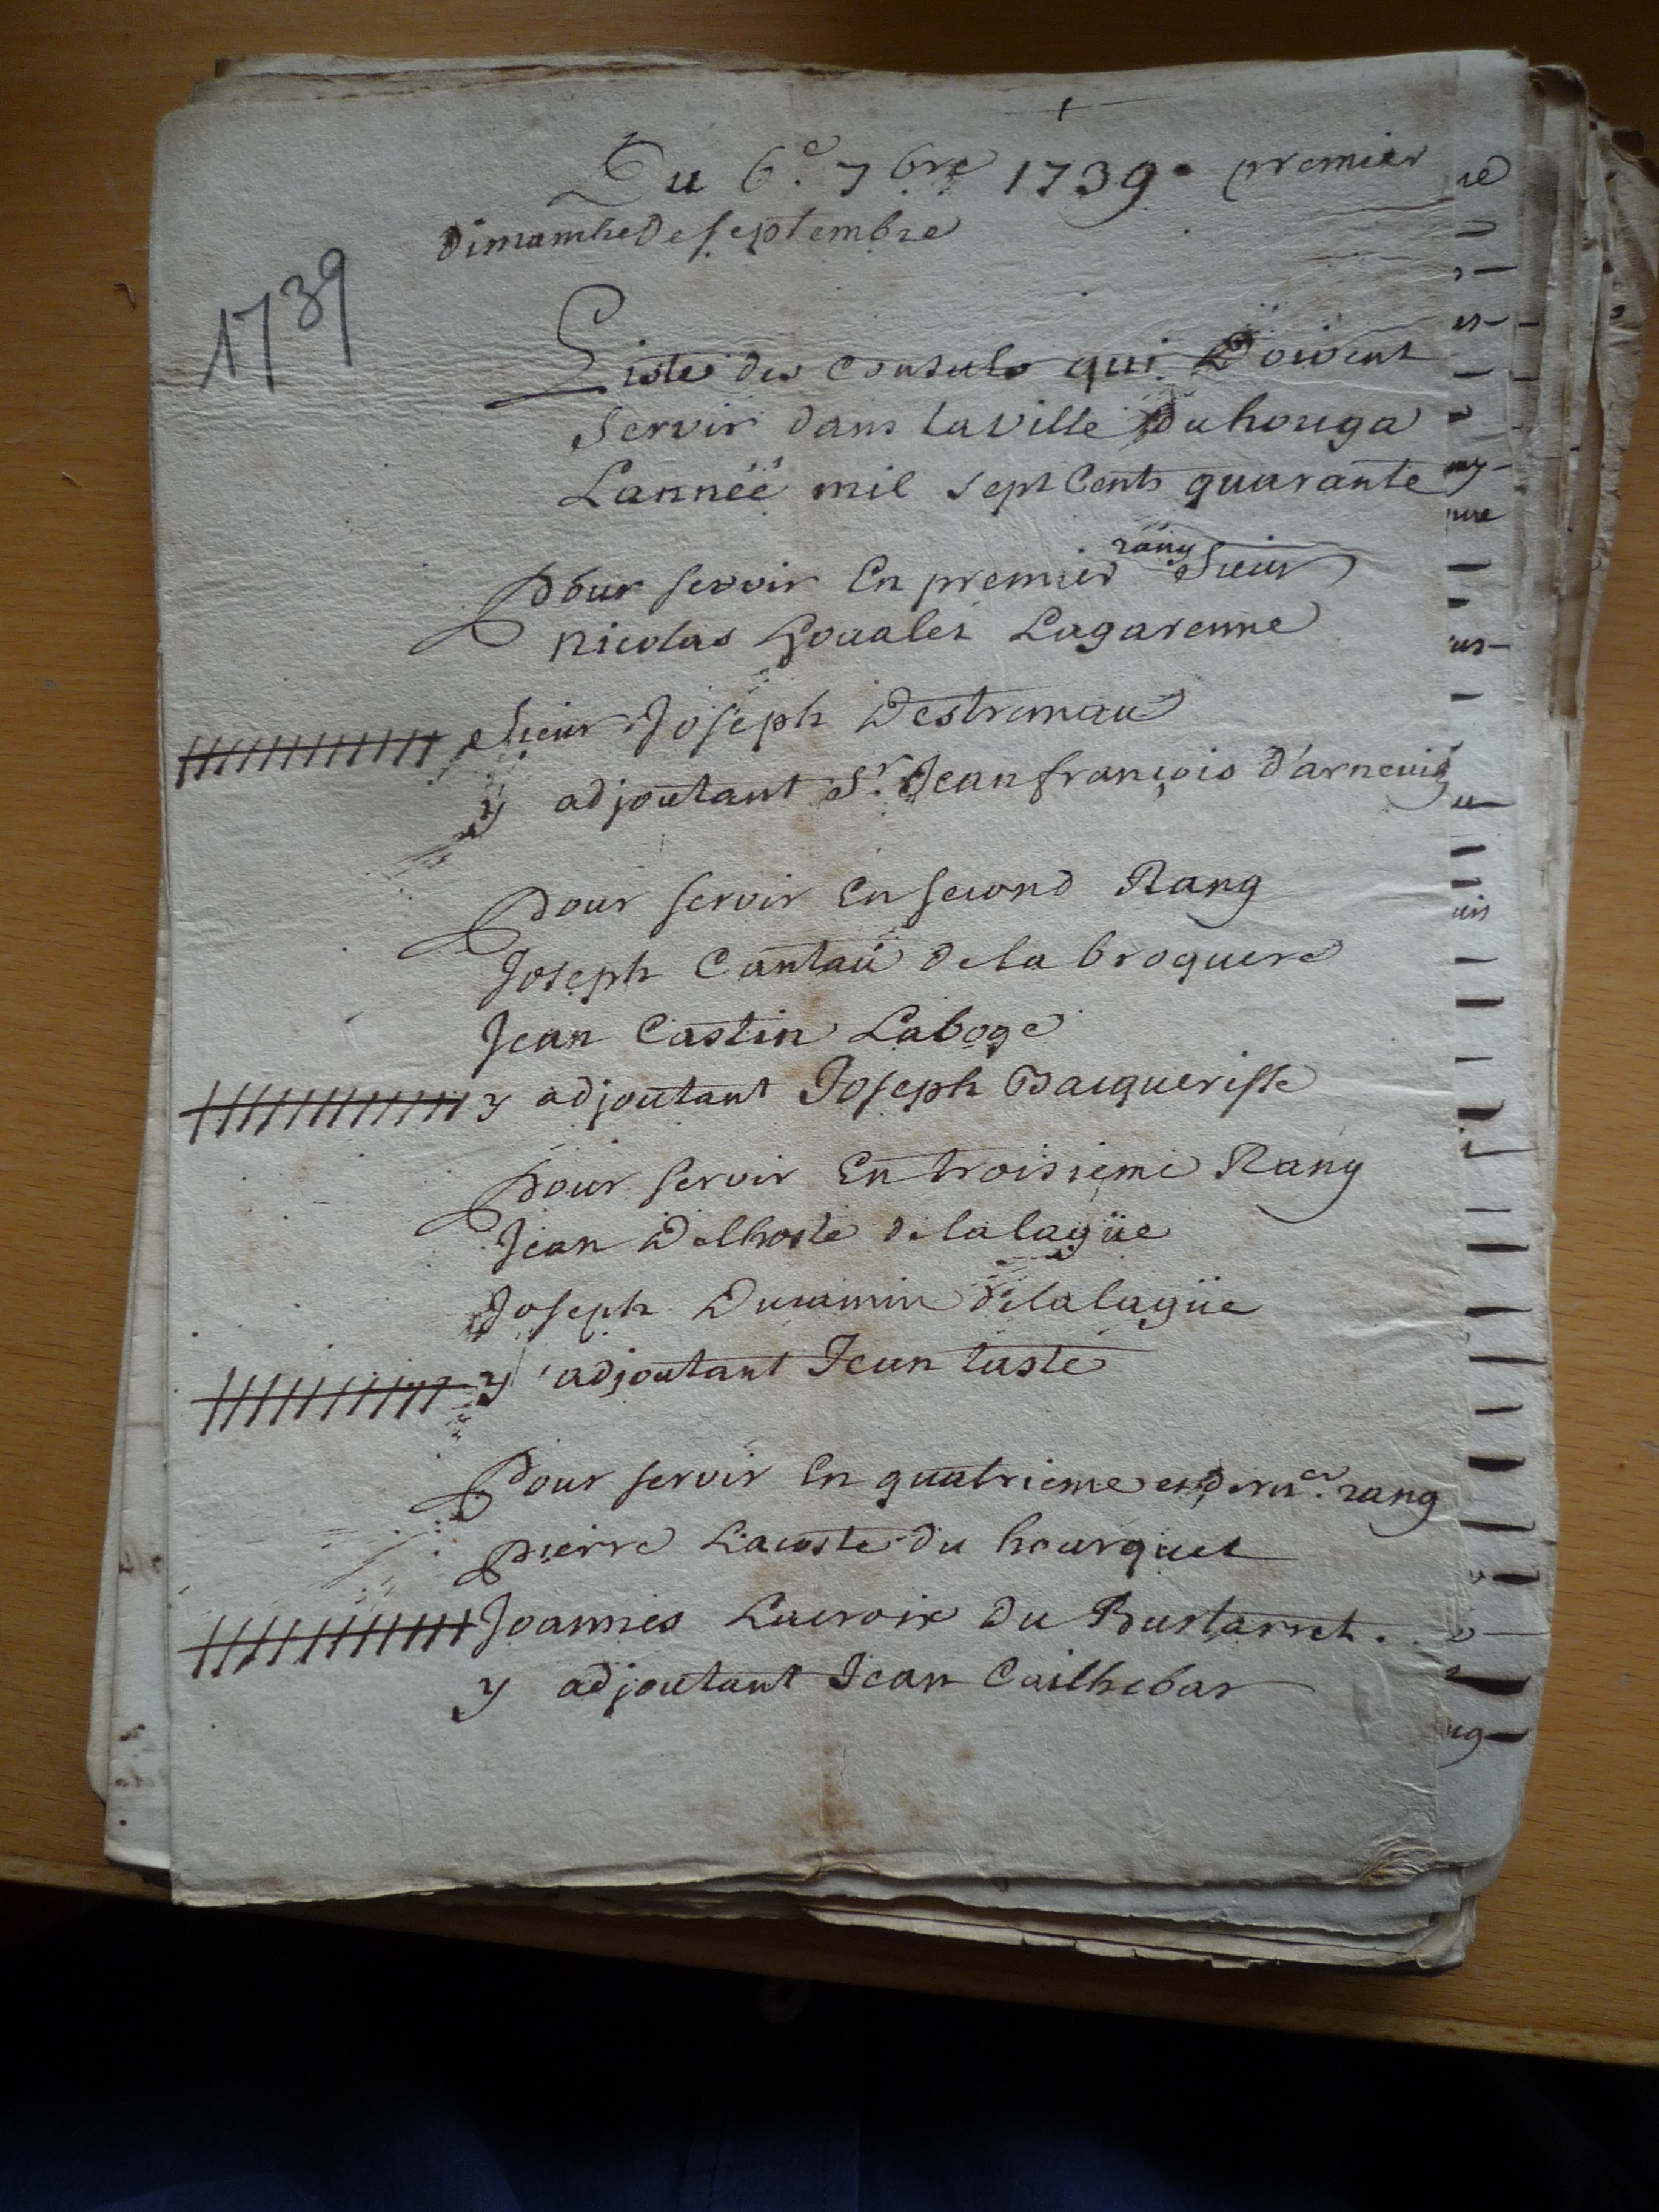 Du 6e. 7bre 1739. premier
dimamche de septembre
1739
Liste des consuls qui doivent
servir dans la ville du houga
Lannéé mil sept Cents quarante
pour servir En premier rang Sieur
nicolas Gouales Lagarenne
sieur Joseph Destremau
y adjoutant Sr. Jean françois d'arneuig
pour servir En second Rang
Joseph Cantaü de la broquere
Jean Castin Laboge
y adjoutant Joseph Bacquerisse
pour servir En troisieme Rang
Jean Delhoste de lalagüe
Joseph Ducamin de lalagüe
y adjoutant Jean taste
Pour servir En quatrieme et derer. rang
pierre Lacoste du hourquet
Joannes Lacroix du Bustarret.
y adjoutant Jean Cailhebar